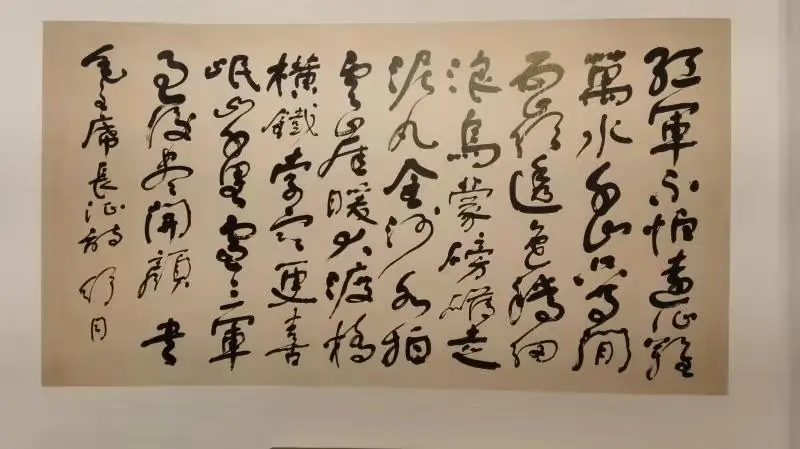 紅軍不怕遠征難
萬水千山只等閒
五嶺逶迤騰細
浪烏蒙磅礴走
泥丸金沙水拍
雲崖暖大渡橋
橫鐵索寒更喜
岷山千里雪三軍
過後盡開顏 書
毛主席長征詩